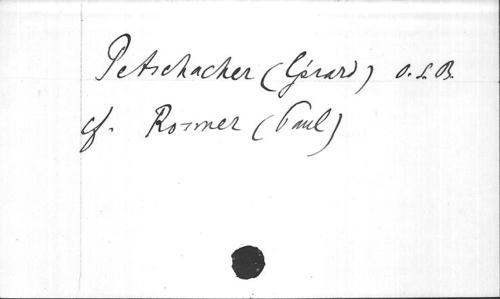 Petschacher (Gérard) O.S.B.
cf. Rosmer (Paul)